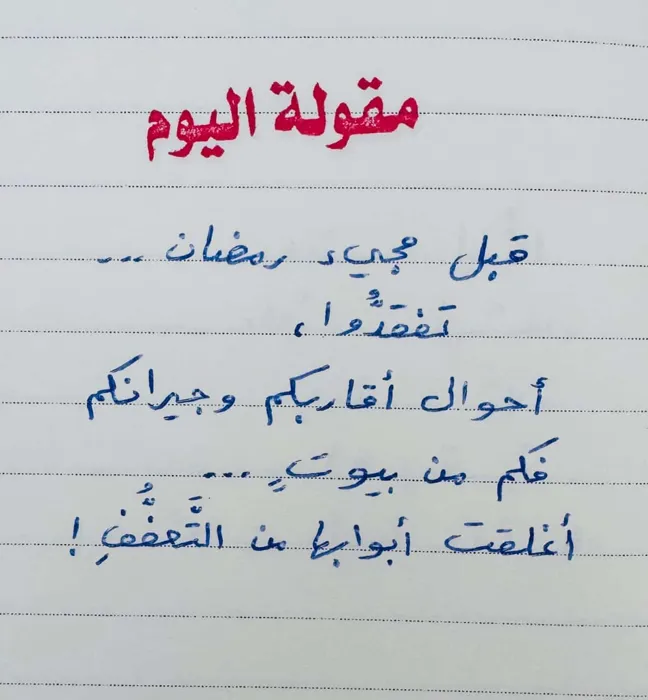 مقولة اليوم
قبل مجيء رمضان ...
تفقدُّوا،
أحوال أقاربكم وجيرانكم
فكم من بيوتٍ ...
أغلقت أبوابها من التَّعفُّفِ !